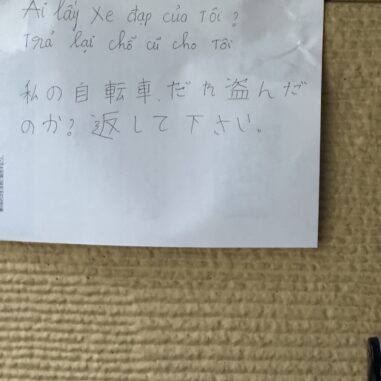 Ai lấy xe đạp của Tôi?
Trả lại chỗ cũ cho Tôi
私の自転車、だれ盗んだ
のか？返して下さい。